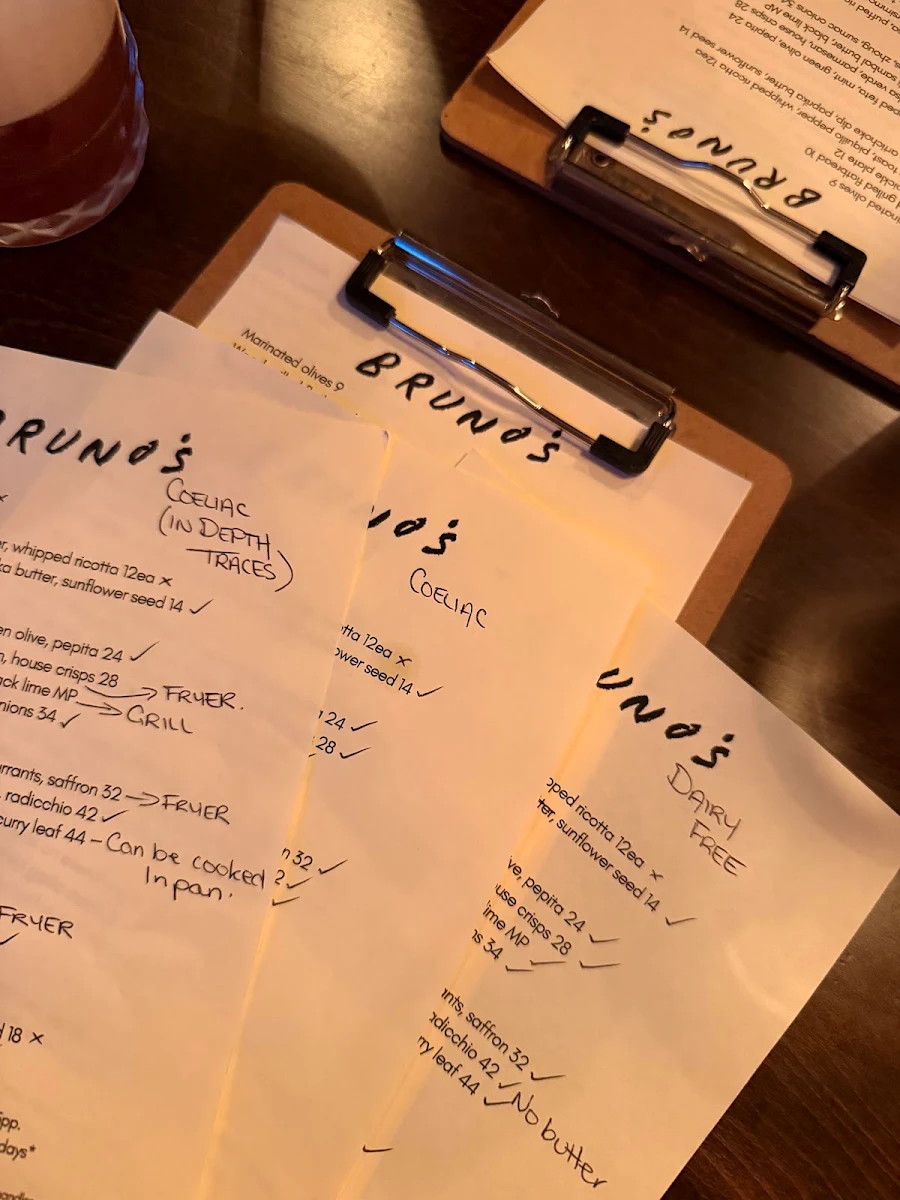 BRUNO'S
Marinated olives 9
RUNO'S
COELIAC
(IN DEPTH
TRACES)
whipped ricotta 12ea ×
butter, sunflower seed 14 ✓
olive, pepita 24 ✓
house crisps 28
lime MP → FRYER.
→ GRILL
34 ✓
saffron 32 → FRYER
radicchio 42 ✓
curry leaf 44 – Can be cooked
In pan.
FRYER
✓
18 ×
days*
O'S
COELIAC
12ea ×
seed 14 ✓
24 ✓
28 ✓
32 ✓
✓
✓
✓
UNO'S
DAIRY
FREE
ricotta 12ea ×
sunflower seed 14 ✓
pepita 24 ✓
crisps 28 ✓
lime MP ✓
34 ✓
saffron 32 ✓
radicchio 42 ✓
leaf 44 ✓ No butter
BRUNO'S
olives 9
grilled flatbread 10
plate 12
toast, piquillo pepper, whipped ricotta 12ea
artichoke dip, paprika butter, sunflower seed 14
feta, mint, green olive, pepita 24
verde, parmesan, house crisps 28
sambal butter, black lime MP
zhoug, sumac onions 34